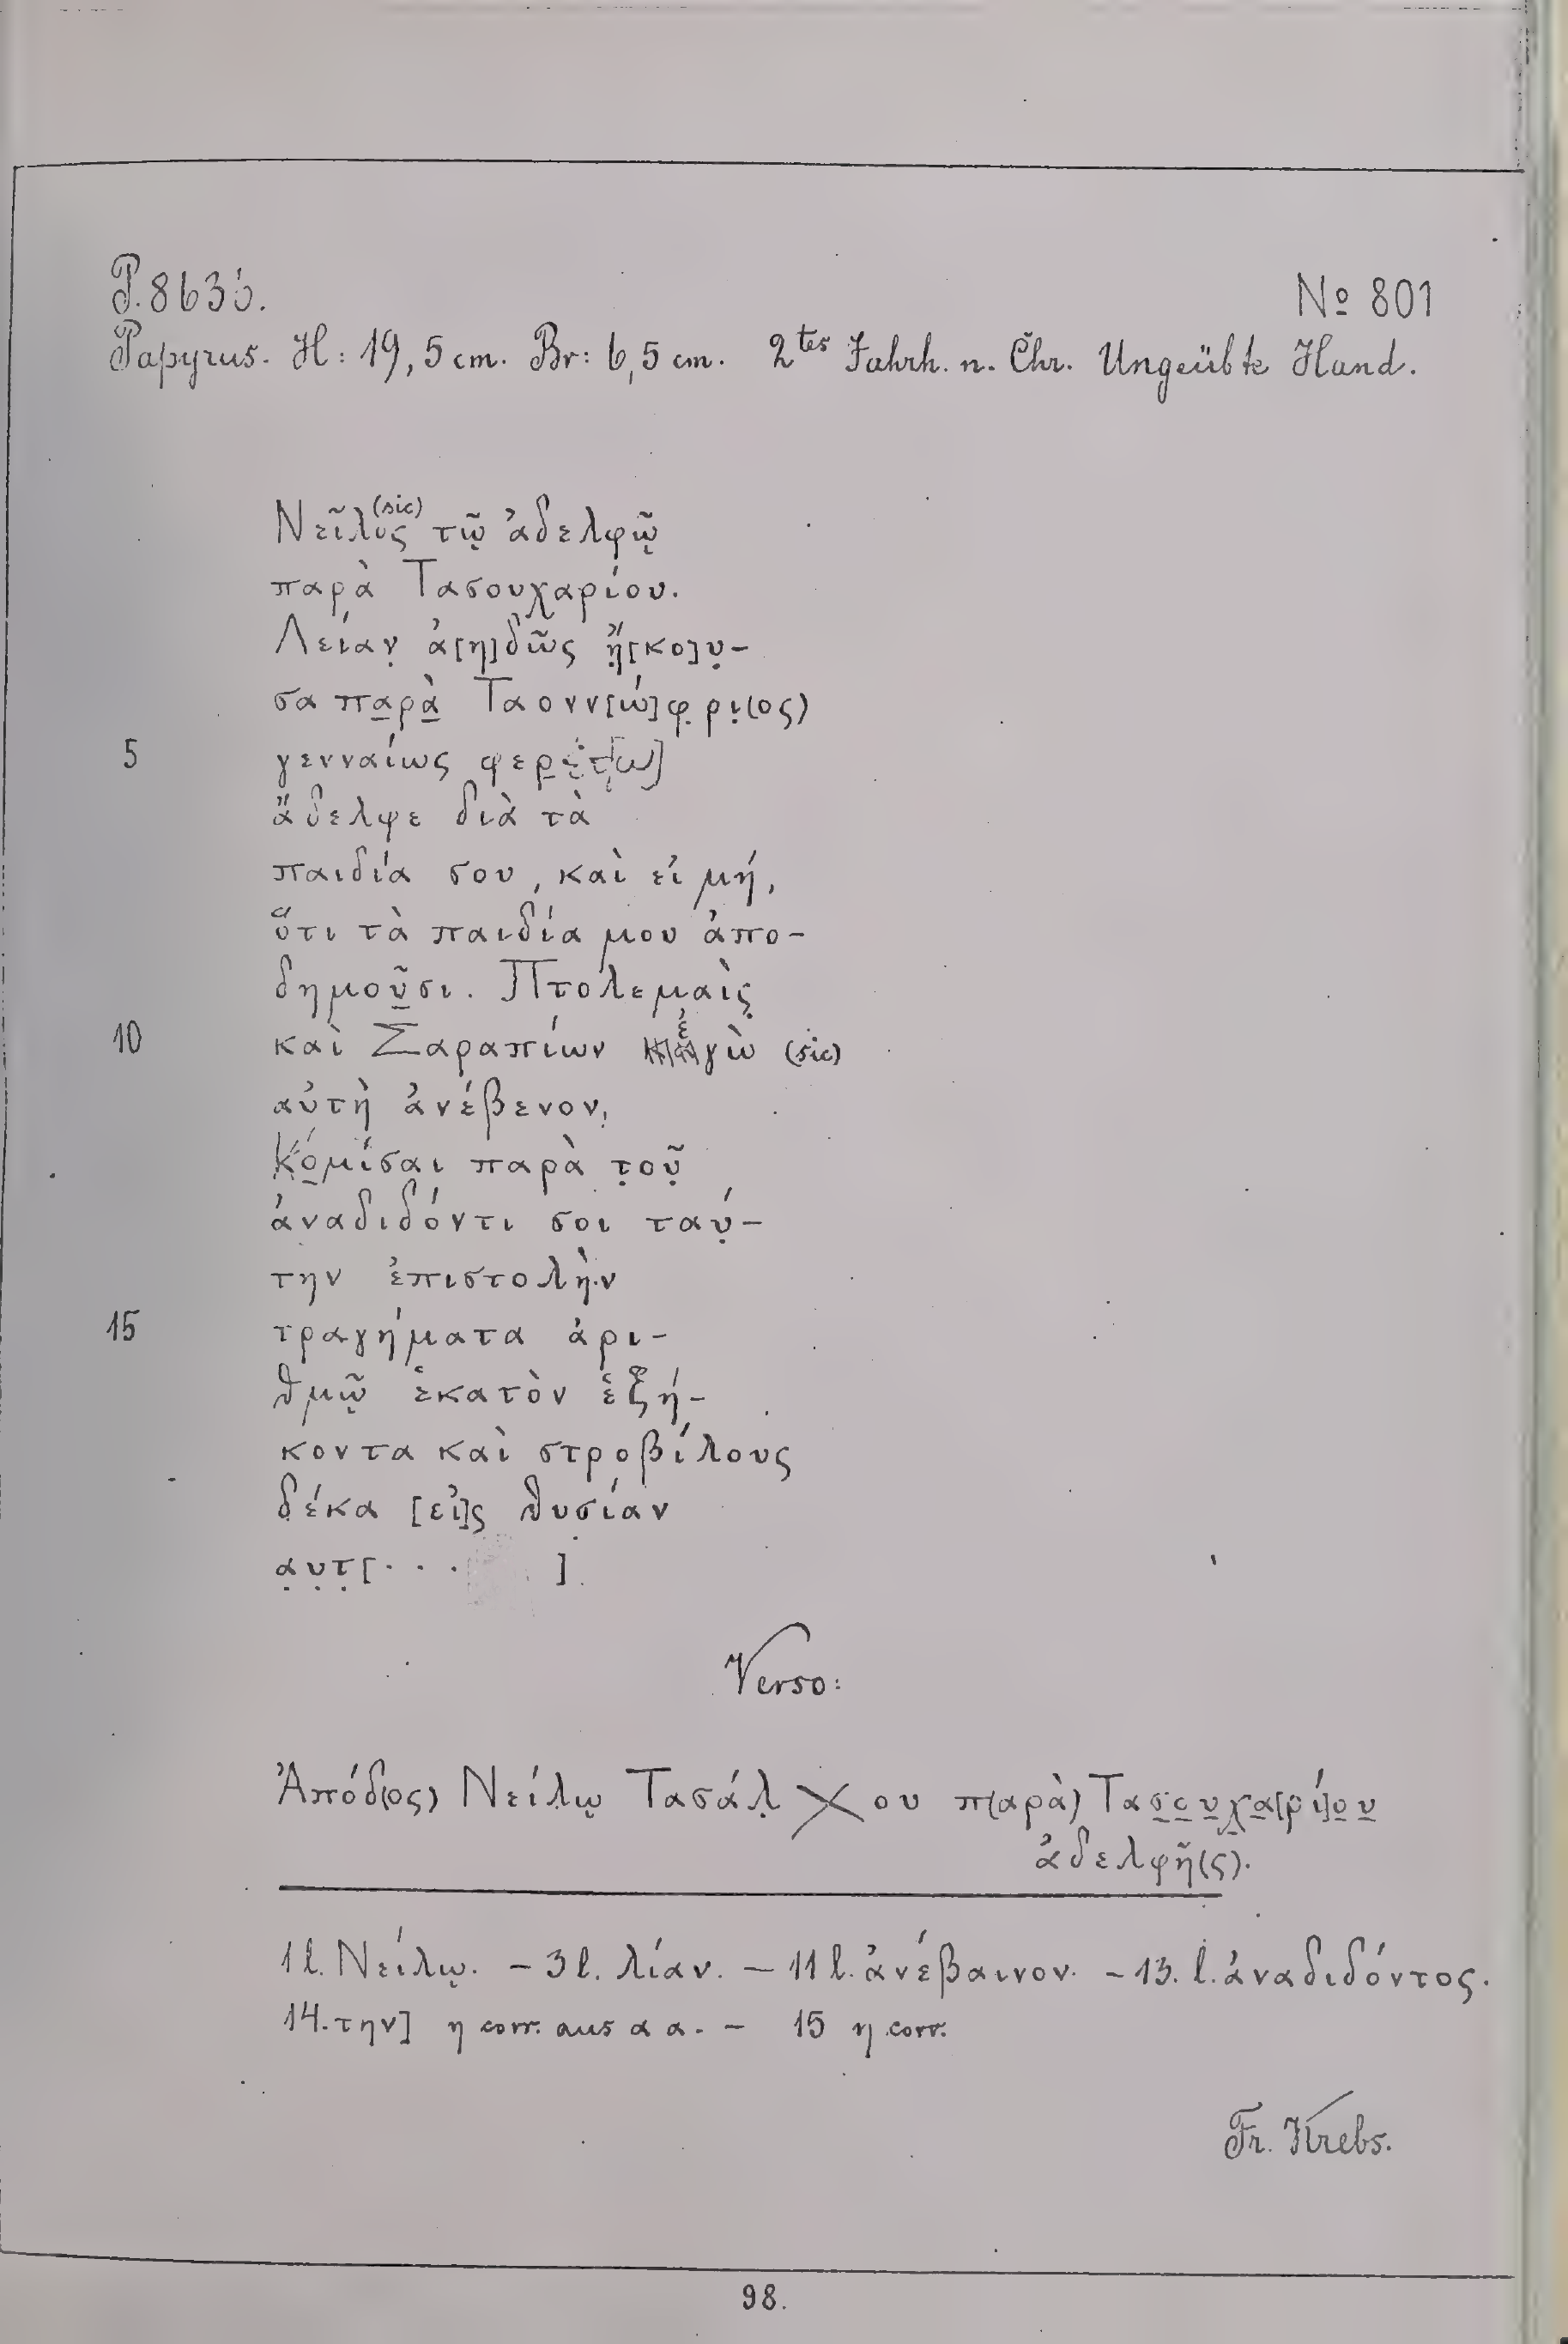 P. 8636.
№ 801
Papyrus. H: 19,5 cm. Br: 6,5 cm. 2tes Jahrh. n. Chr. Ungeübte Hand.
Νεῖλος (sic) τῷ ἀδελφῷ
παρὰ Τασουχαρίου.
Λείαν̣ ἀ[η]δῶς ἤ̣[κο]υ̣-
σα πα̣ρὰ̣ Ταονν[ώ]φ̣ρι̣(ος)
5 γενναίως φερ̣έ̣τ̣[ω]
ἄδελφε διὰ τὰ
παιδία σου, καὶ εἰ μή,
ὅτι τὰ παιδία μου ἀπο-
δημοῦ̣σι. Πτολεμαὶς̣
10 καὶ Σαραπίων ἐγὼ (sic)
αὐτὴ ἀνέβενον,
Κό̣μίσαι παρὰ τ̣οῦ̣
ἀναδιδόντι σοι ταύ̣-
την ἐπιστολὴν
15 τραγήματα ἀρι-
θμῷ ἑκατὸν ἑξή-
κοντα καὶ στροβίλους
δ̣έκα [εἰ]ς θυσίαν
α̣υ̣τ̣[. . . ]
Verso:
Ἀπόδ(ος) Νείλ̣ῳ Τασάλ̣ X ου π(αρὰ) Τασ̣ο̣υ̣χ̣α̣[ρί]ο̣υ̣
ἀδελφῆ(ς).
1 l. Νείλῳ. – 3 l. λίαν. – 11 l. ἀνέβαινον. – 13. l. ἀναδιδόντος.
14. την] η corr. aus α α. – 15 η corr.
Fr. Krebs.
98.